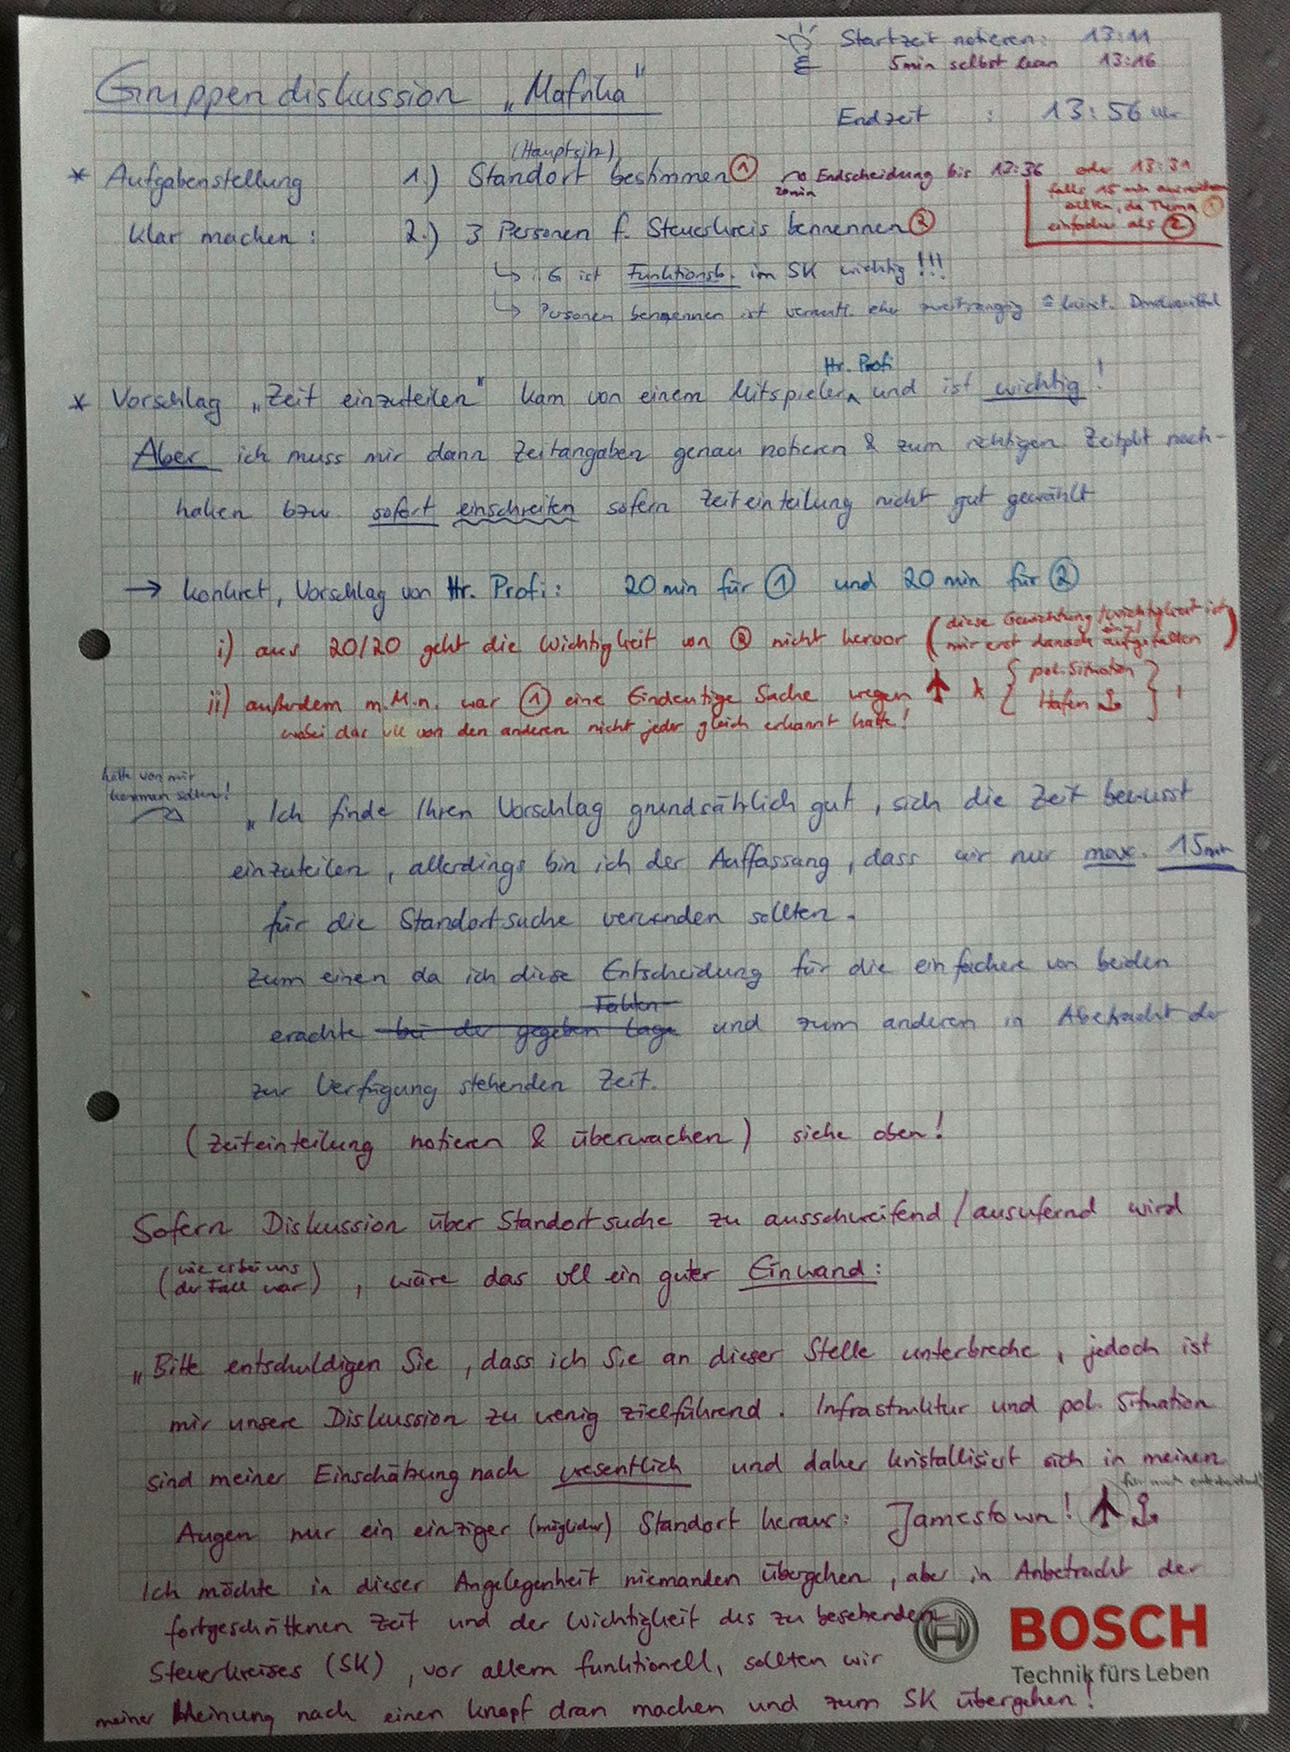 Startzeit notieren: 13:11
5min selbst lesen 13:16
Gruppendiskussion „Mafrika"
Endzeit : 13:56 Uhr
(Hauptsitz)
* Aufgabenstellung 1.) Standort bestimmen ① 20min Endscheidung bis 13:36 oder 13:31
falls 15 min ausreichen
sollten, da Thema ①
einfacher als ②
klar machen: 2.) 3 Personen f. Steuerkreis bennennen ②
↳ ist Funktionsb. im SK wichtig!!!
↳ Personen benennen ist vermutl. eher zweitrangig
Hr. Profi
* Vorschlag „Zeit einzuteilen" kam von einem Mitspieler und ist wichtig!
Aber ich muss mir dann Zeitangaben genau notieren & zum richtigen Zeitpkt nach-
haken bzw. sofort einschreiten sofern Zeiteinteilung nicht gut gewählt
→ konkret, Vorschlag von Hr. Profi: 20 min für ① und 20 min für ②
i) aus 20/20 geht die Wichtigkeit von ② nicht hervor (diese Gewichtung/Wichtigkeit ist
mir erst danach aufgefallen)
ii) außerdem m.M.n. war ① eine Eindeutige Sache wegen & { pol. Situation
Hafen } !
wobei das von den anderen nicht jeder gleich erkannt hatte!
hätte von mir
kommen sollen!
„Ich finde Ihren Vorschlag grundsätzlich gut, sich die Zeit bewusst
einzuteilen, allerdings bin ich der Auffassung, dass wir nur max. 15min
für die Standortsuche verwenden sollten.
Zum einen da ich diese Entscheidung für die einfachere von beiden
Fakten
erachte bei der gegeben Lage und zum anderen in Abetracht der
zur Verfügung stehenden Zeit.
(Zeiteinteilung notieren & überwachen) siehe oben!
Sofern Diskussion über Standortsuche zu ausschweifend/ausufernd wird
(wie es bei uns
der Fall war), wäre das vll ein guter Einwand:
„Bitte entschuldigen Sie, dass ich Sie an dieser Stelle unterbreche, jedoch ist
mir unsere Diskussion zu wenig zielführend. Infrastruktur und pol. Situation
sind meiner Einschätzung nach wesentlich und daher kristallisiert sich in meinen
für mich entscheidend!
Augen nur ein einziger (möglicher) Standort heraus: Jamestown!
Ich möchte in dieser Angelegenheit niemanden übergehen, aber in Anbetracht der
fortgeschrittenen Zeit und der Wichtigkeit des zu besetzenden
Steuerkreises (SK), vor allem funktionell, sollten wir
meiner Meinung nach einen Knopf dran machen und zum SK übergehen!
BOSCH
Technik fürs Leben